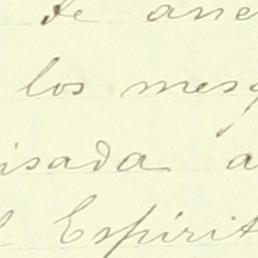 de ane
los mesq
isada a
l Espirit